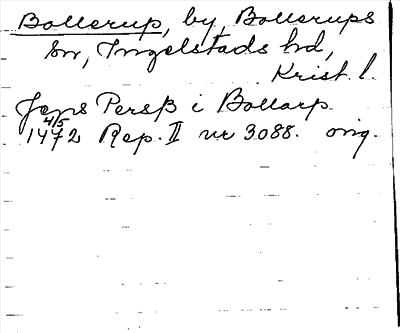 Bollerup, by, Bollerups
sn, Ingelstads hd,
Krist. l.
Jens Persß i Bollarp
4/5
1472 Rep. II nr 3088. orig.